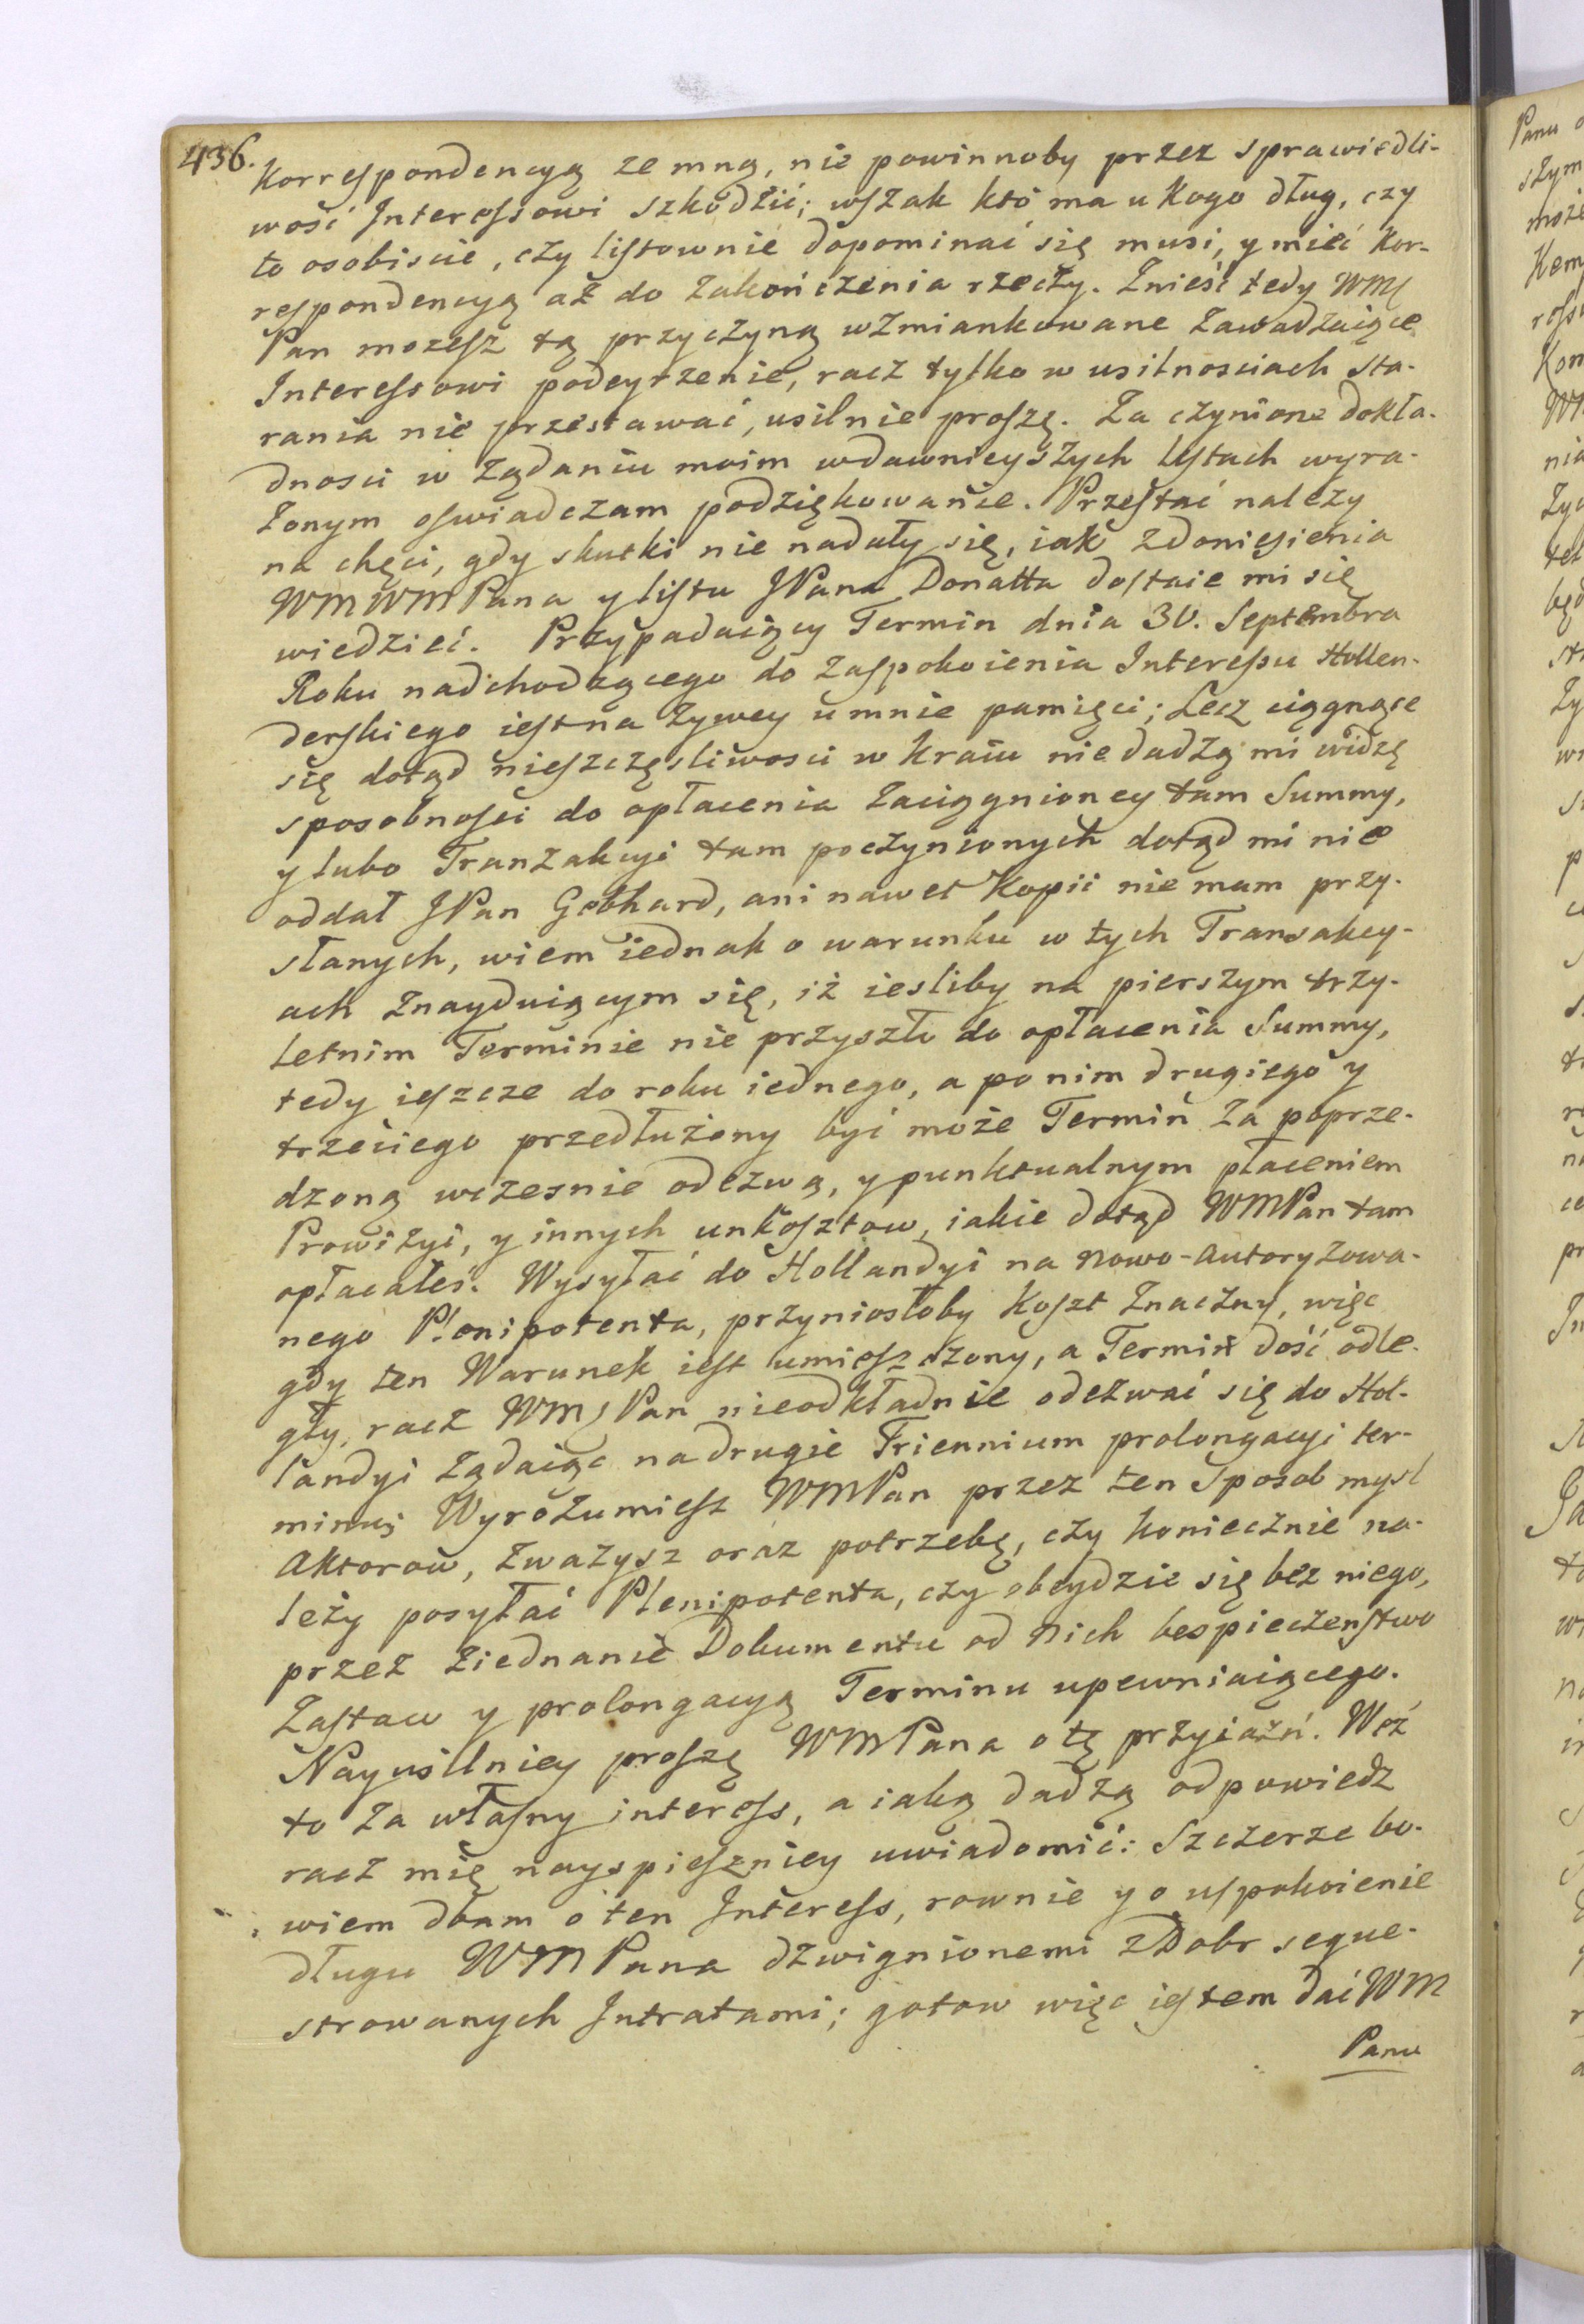 436.
Korrespondencyą ze mną, nie powinnoby przez sprawiedli-
wość Interessowi szkodzić; wszak któ ma u kogo dług, czy
to osobiscie, czy listownie dopominać się musi, y mieć kor-
respondencyą aż do zakończenia rzeczy. Znieść tedy WM
Pan mozesz tą przyczyną wzmiankowane zawadzaiące
Interessowi podeyrzenie, racz tylko w usilnosciach sta-
rania nie przestawać, usilnie proszę. Za czynione dokła-
dnosci w żądaniu moim w dawnieyszych listach wyra-
żonym oswiadczam podziękowanie. Przestać nalezy
na chęci, gdy skutki nie nadały się, iak z doniesienia
WMWMPana y listu JPana Donatta dostaie mi się
wiedzieć. Przypadaiący Termin dnia 30. Septembra
Roku nadchodzącego do zaspokoienia Interessu Hollen-
derskiego iest na żywey u mnie pamięci; Lecz ciągnące
się dotąd nieszczęsliwosci w kraiu nie dadzą mi widzę
sposobnosci do opłacenia zaciągnioney tam Summy,
y lubo Tranzakcyi tam poczynionych dotąd mi nie
oddał JPan Gebhard, ani nawet Kopii nie mam przy-
słanych, wiem iednak o warunku w tych Transakcy-
ach znayduiącym się, iż iesliby na pierszym trzy-
letnim Terminie nie przyszło do opłacenia Summy,
tedy ieszcze do roku iednego, a po nim drugiego y
trzeciego przedłużony być może Termin za poprze-
dzoną wczesnie odezwą, y punktualnym płaceniem
Prowizyi, y innych unkosztow, iakie dotąd WMPan tam
opłacałeś. Wysyłać do Hollandyi na nowo-autoryzowa-
nego Plenipotenta, przyniosłoby koszt znaczny, więc
gdy ten Warunek iest umieszczony, a Termin dość odle-
gły, racz WM Pan nieodkładnie odezwać się do Hol-
landyi żądaiąc na drugie Triennium prolongacyi ter-
minu; Wyrozumiesz WMPan przez ten sposob mysl
Aktorow, zważysz oraz potrzebę, czy koniecznie na-
leży posyłać Plenipotenta, czy obeydzie się bez niego,
przez ziednanie Dokumentu od nich bespieczenstwo
Zastaw y prolongacyą Terminu upewniaiącego.
Nayusilniey proszę WMPana o tę przyiaźń. Weź
to za własny interess, a iaką dadzą odpowiedz
racz mię nayspieszniey uwiadomić: Szczerze bo-
wiem dbam o ten Interess, rownie y o uspokoienie
długu WMPana dzwignionemi z Dobr seque-
strowanych Intratami; gotow więc iestem dać WM
Panu